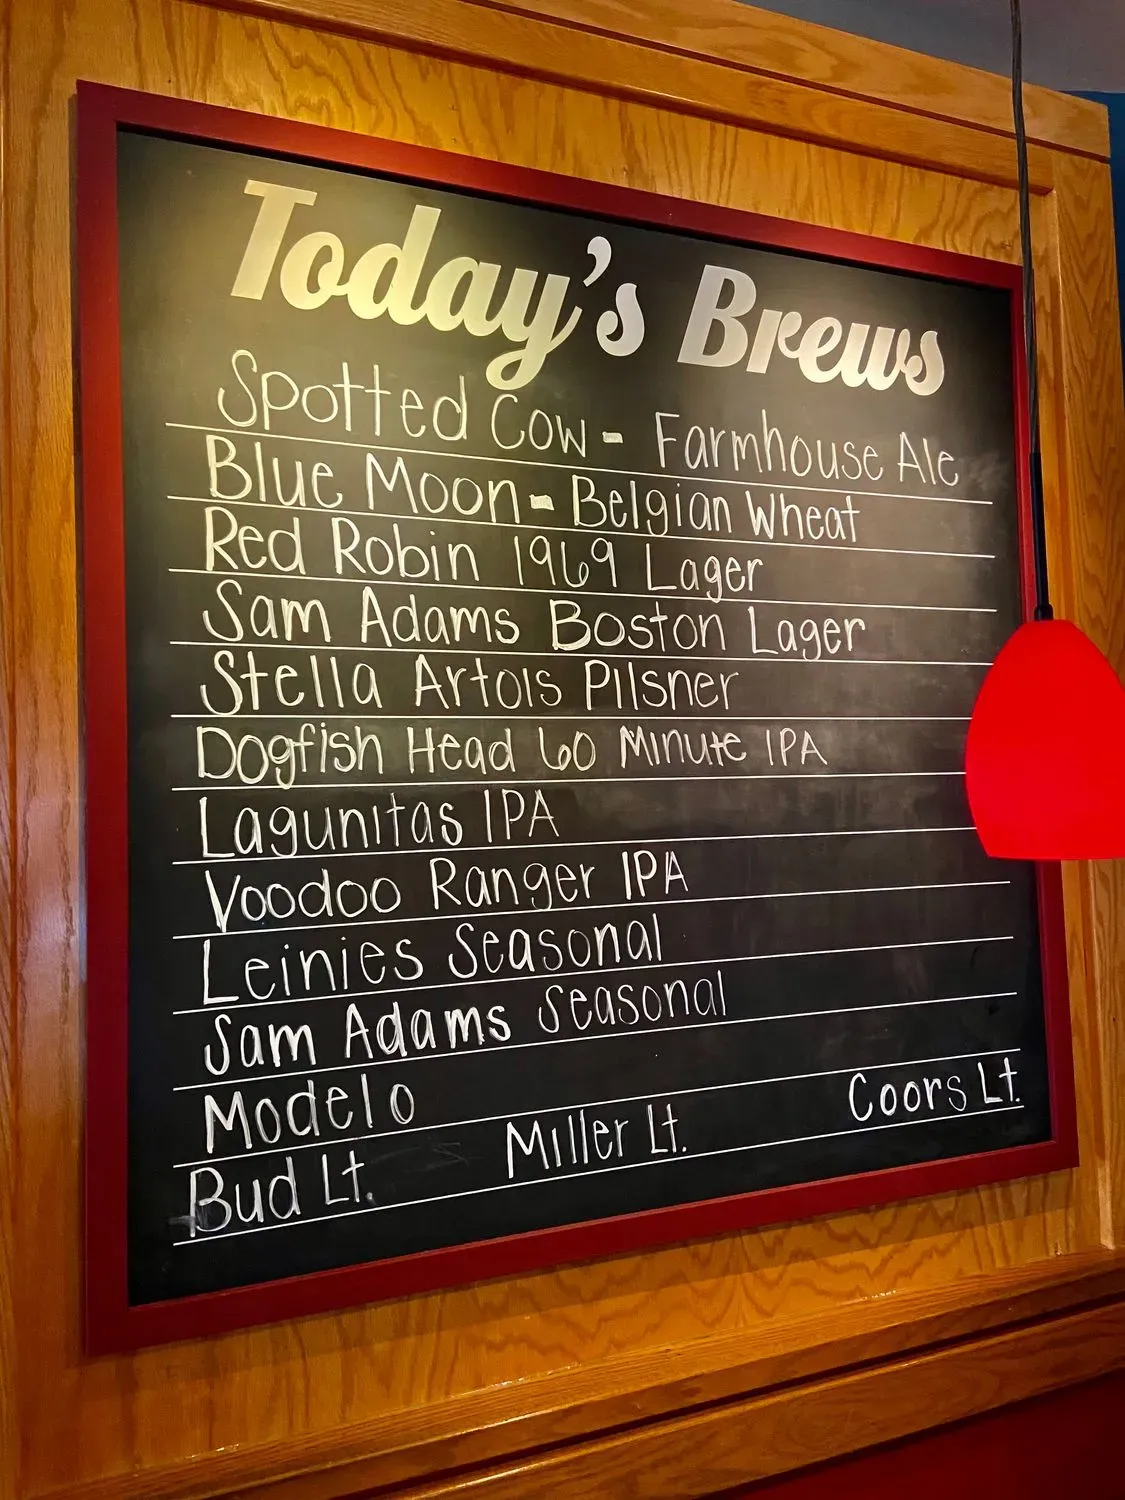 Today's Brews
Spotted Cow - Farmhouse Ale
Blue Moon - Belgian Wheat
Red Robin 1969 Lager
Sam Adams Boston Lager
Stella Artois Pilsner
Dogfish Head 60 Minute IPA
Lagunitas IPA
Voodoo Ranger IPA
Leinies Seasonal
Sam Adams Seasonal
Modelo
Bud Lt. Miller Lt. Coors Lt.